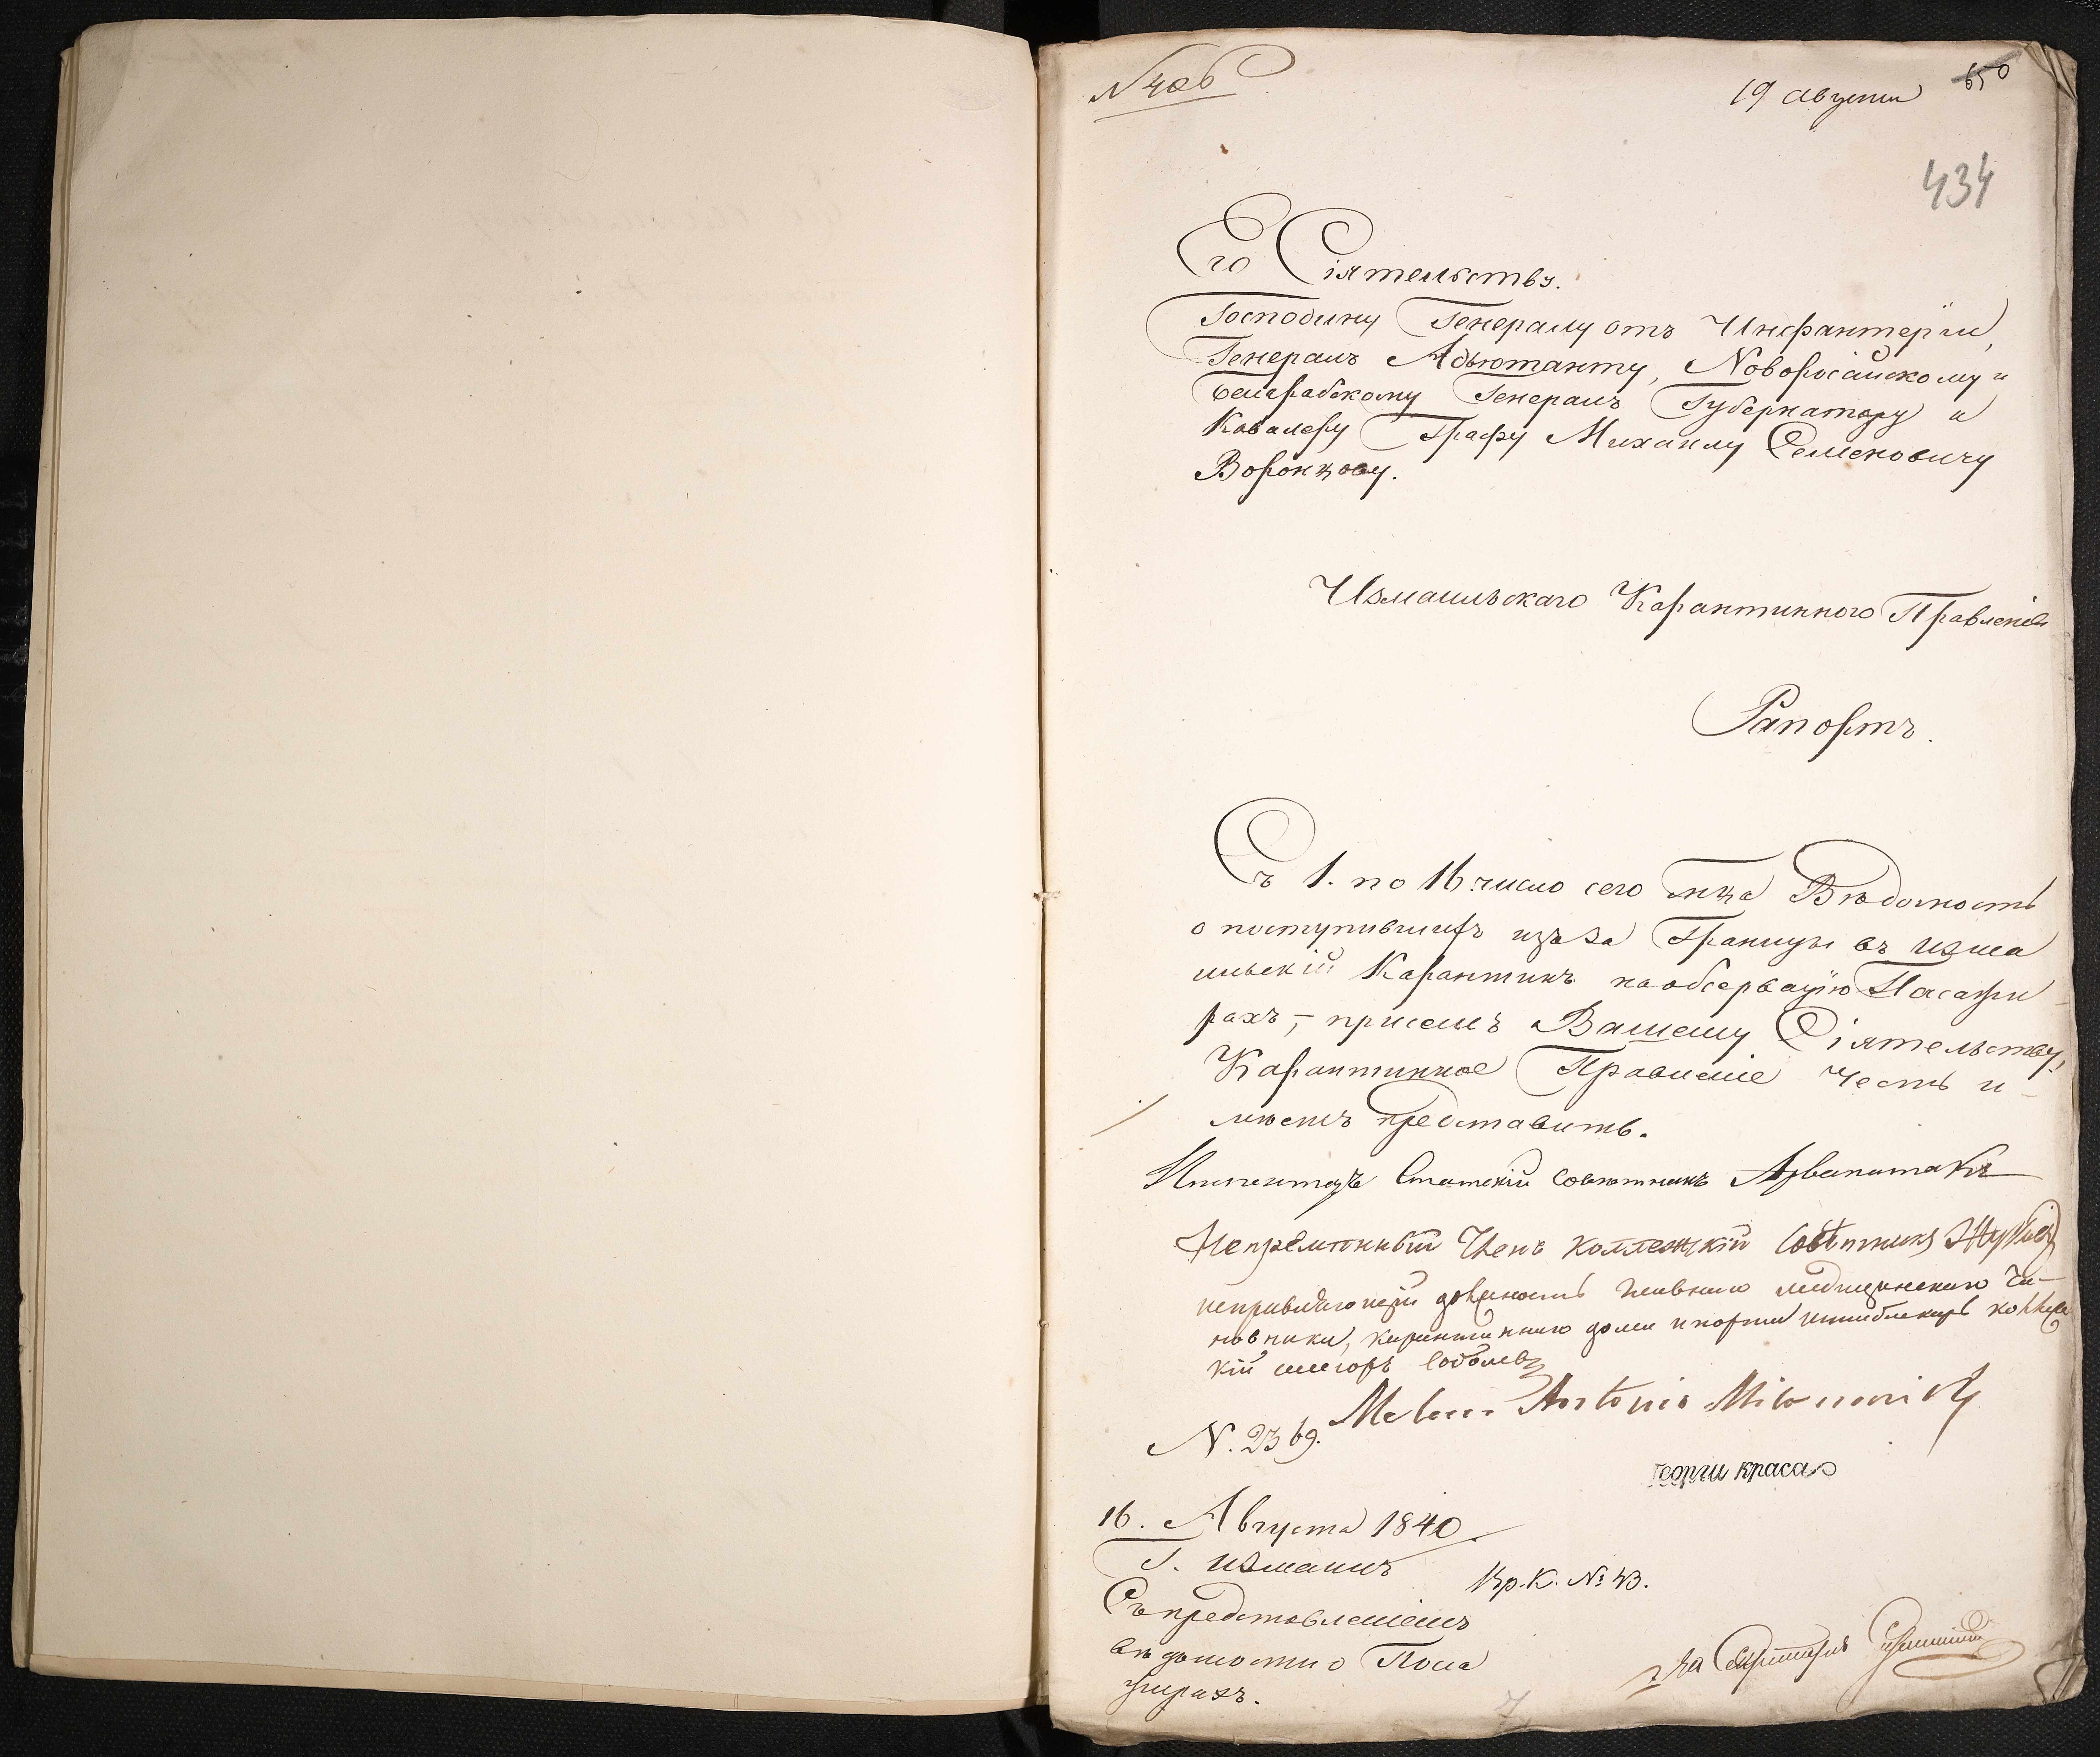 N 406
19 августа
650
434
Его Сіятельству.
Господину Генералу отъ Инфантеріи,
Генералъ Адьютанту, Новоросійскому и
Бессарабскому Генералъ Губернатору и
Кавалеру Графу Михаилу Семеновичу
Воронцову.
Измаильскаго Карантиннаго Правленія
Рапортъ.
Съ 1. по 16 число сего мца Вѣдомость
о поступившихъ изъ за Границы въ Изма
ильскій Карантинъ на обсервацію Пасажи
рахъ, – присемъ Вашему Сіятельству,
Карантинное Правленіе Честь и
мѣетъ представить.
Инспекторъ Статскій Совѣтникъ Арванитаки
Непремѣнный Членъ Коллежскій Совѣтникъ
исправляющій должность главнаго медицинскаго чи-
новника, карантиннаго дома и порта штаблекарь коллеж
кій Соболевъ
Antonio
N. 2369.
Георги краса
16. Августа 1840
Г. Измаилъ
Кр. К. № 43.
Съ представленіемъ
вѣдомости о Паса
жирахъ.
За Секретаря